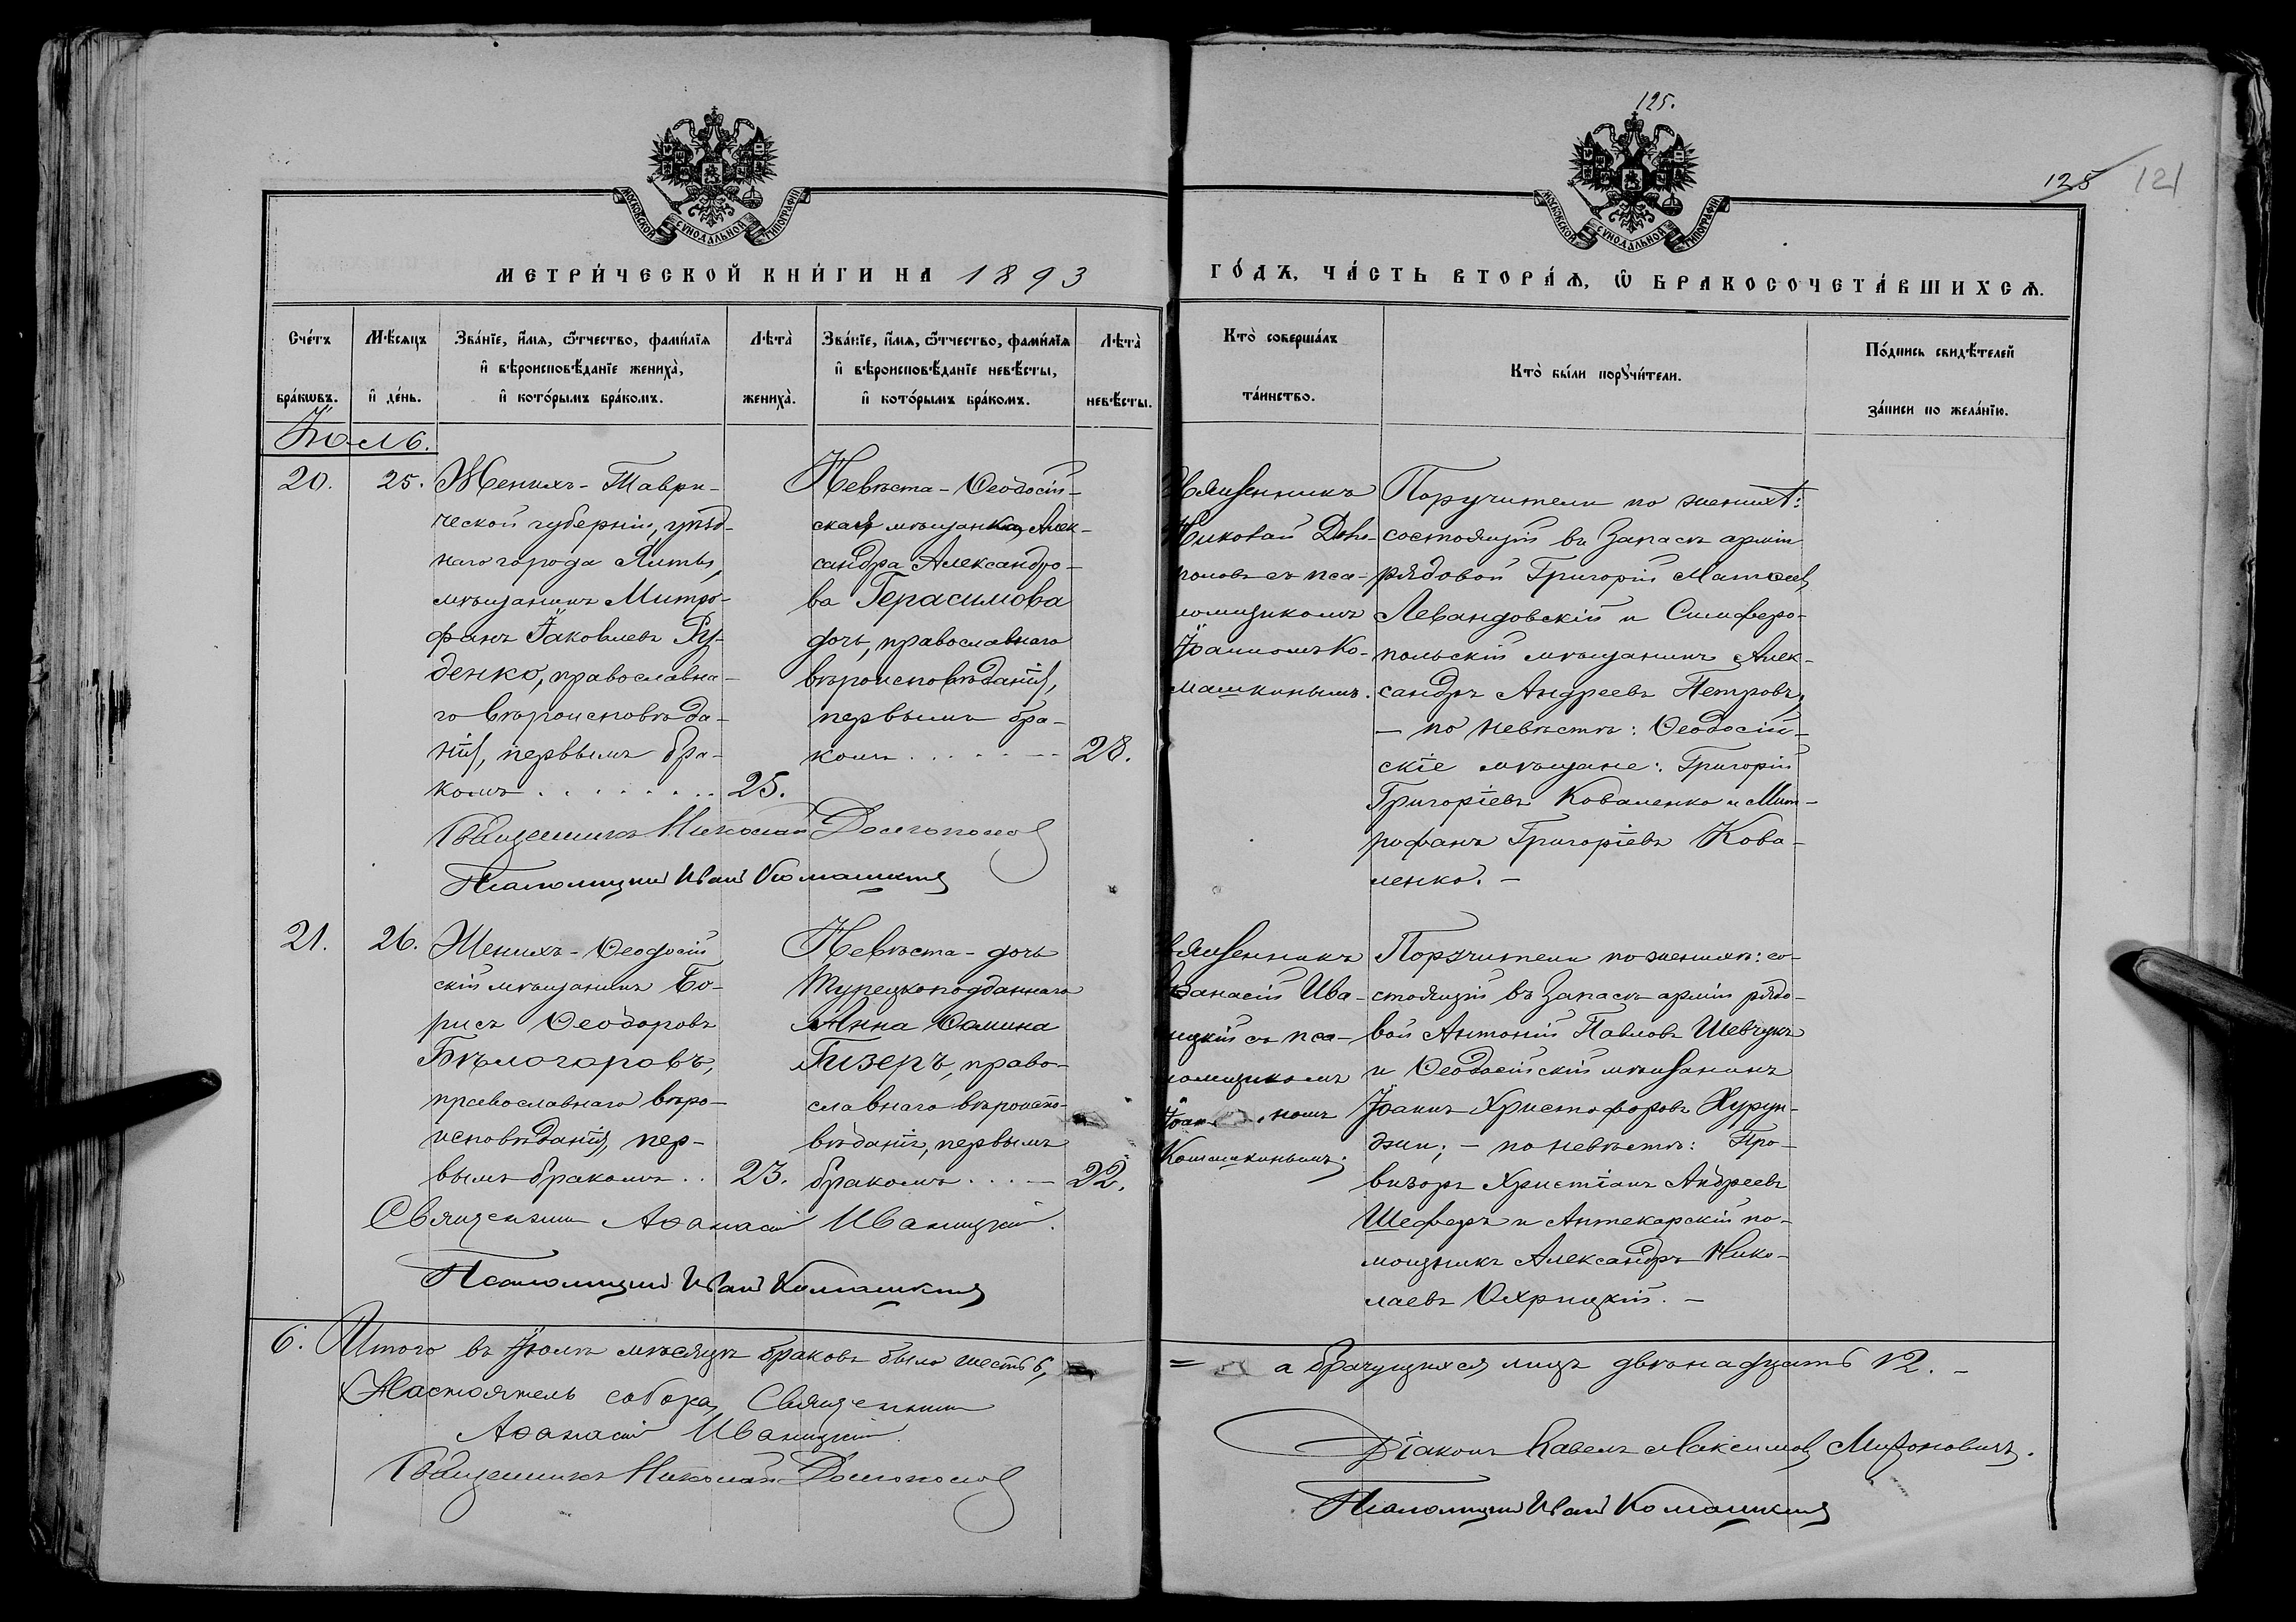 125.
125 121
МОСКОВСКОЙ СѴНОДАЛЬНОЙ ТИПОГРАФІИ
МОСКОВСКОЙ СѴНОДАЛЬНОЙ ТИПОГРАФІИ
МЕТРИ́ЧЕСКОЙ КНИ́ГИ НА 1893
ГО́ДЪ, ЧА́СТЬ ВТОРА́Ѧ, Ѿ БРАКОСОЧЕТА́ВШИХСѦ.
Сче́тъ
бра́кѡвъ.
Мѣ́сѧцъ
и҆ де́нь.
Зва́нїе, и҆́мѧ, ѻ҆́тчество, фами́лїѧ
и҆ вѣроисповѣ́данїе жениха̀,
и҆ кото́рымъ бра́комъ.
Лѣта̀
жениха̀.
Зва́нїе, и҆́мѧ, ѻ҆́тчество, фами́лїѧ
и҆ вѣроисповѣ́данїе невѣ́сты,
и҆ кото́рымъ бра́комъ.
Лѣта̀
невѣ́сты.
Кто̀ соверша́лъ
та́инство.
Кто̀ бы́ли порꙋчи́тели.
По́дпись свидѣ́телей
за́писи по жела́нїю.
Іюль.
20.
25.
Женихъ - Таври-
ческой губерніи, уѣзд-
наго города Ялты,
мѣщанинъ Митро-
фанъ Іаковлевъ Ру-
денко, православна-
го вѣроисповѣда-
нія, первымъ бра-
комъ . . . . . . . . 25.
Невѣста - Ѳеодосій-
ская мѣщанка Алек-
сандра Александро-
ва Герасимова
дочь, православнаго
вѣроисповѣданія,
первымъ бра-
комъ . . . . . — 28.
Священникъ
Николай Долго-
половъ съ пса-
ломщикомъ
Іоанномъ Ко-
машкинымъ.
Поручители по женихѣ:
состоящій въ запасѣ арміи
рядовой Григорій Матѳеевъ
Левандовскій и Симферо-
польскій мѣщанинъ Алек-
сандръ Андреевъ Петровъ,
— по невѣстѣ: Ѳеодосій-
скіе мѣщане: Григорій
Григоріевъ Коваленко и Мит-
рофанъ Григоріевъ Кова-
ленко. —
Священникъ Николай Долгополовъ
Псаломщикъ Иванъ Комашкинъ
21.
26.
Женихъ - Ѳеодосій
скій мѣщанинъ Бо-
рисъ Ѳеодоровъ
Бѣлогоровъ,
православнаго вѣро-
исповѣданія, пер-
вымъ бракомъ . . 23.
Невѣста - дочь
Турецкоподданнаго
Анна Ѳомина
Гизеръ, право-
славнаго вѣроиспо-
вѣданія, первымъ
бракомъ . . . — 22.
Священникъ
Аѳанасій Ива-
ницкій съ пса-
ломщикомъ
Іоанномъ
Комашкинымъ.
Поручители по женихѣ: со-
стоящій въ запасѣ арміи рядо-
вой Антоній Павловъ Шевчукъ
и Ѳеодосійскій мѣщанинъ
Іоаннъ Христофоровъ Хурун-
джи; — по невѣстѣ: Про-
визоръ Христіанъ Андреевъ
Шеферъ и Аптекарскій по-
мощникъ Александръ Нико-
лаевъ Охрицкій. —
Священникъ Аѳанасій Иваницкій.
Псаломщикъ Иванъ Комашкинъ
6. Итого въ Іюлѣ мѣсяцѣ браковъ было шесть 6,
= а брачущихся лицъ двѣнадцать 12. —
Настоятель собора, Священникъ
Аѳанасій Иваницкій
Священникъ Николай Долгополовъ
Діаконъ Павелъ Максимовъ Мироновичъ.
Псаломщикъ Иванъ Комашкинъ